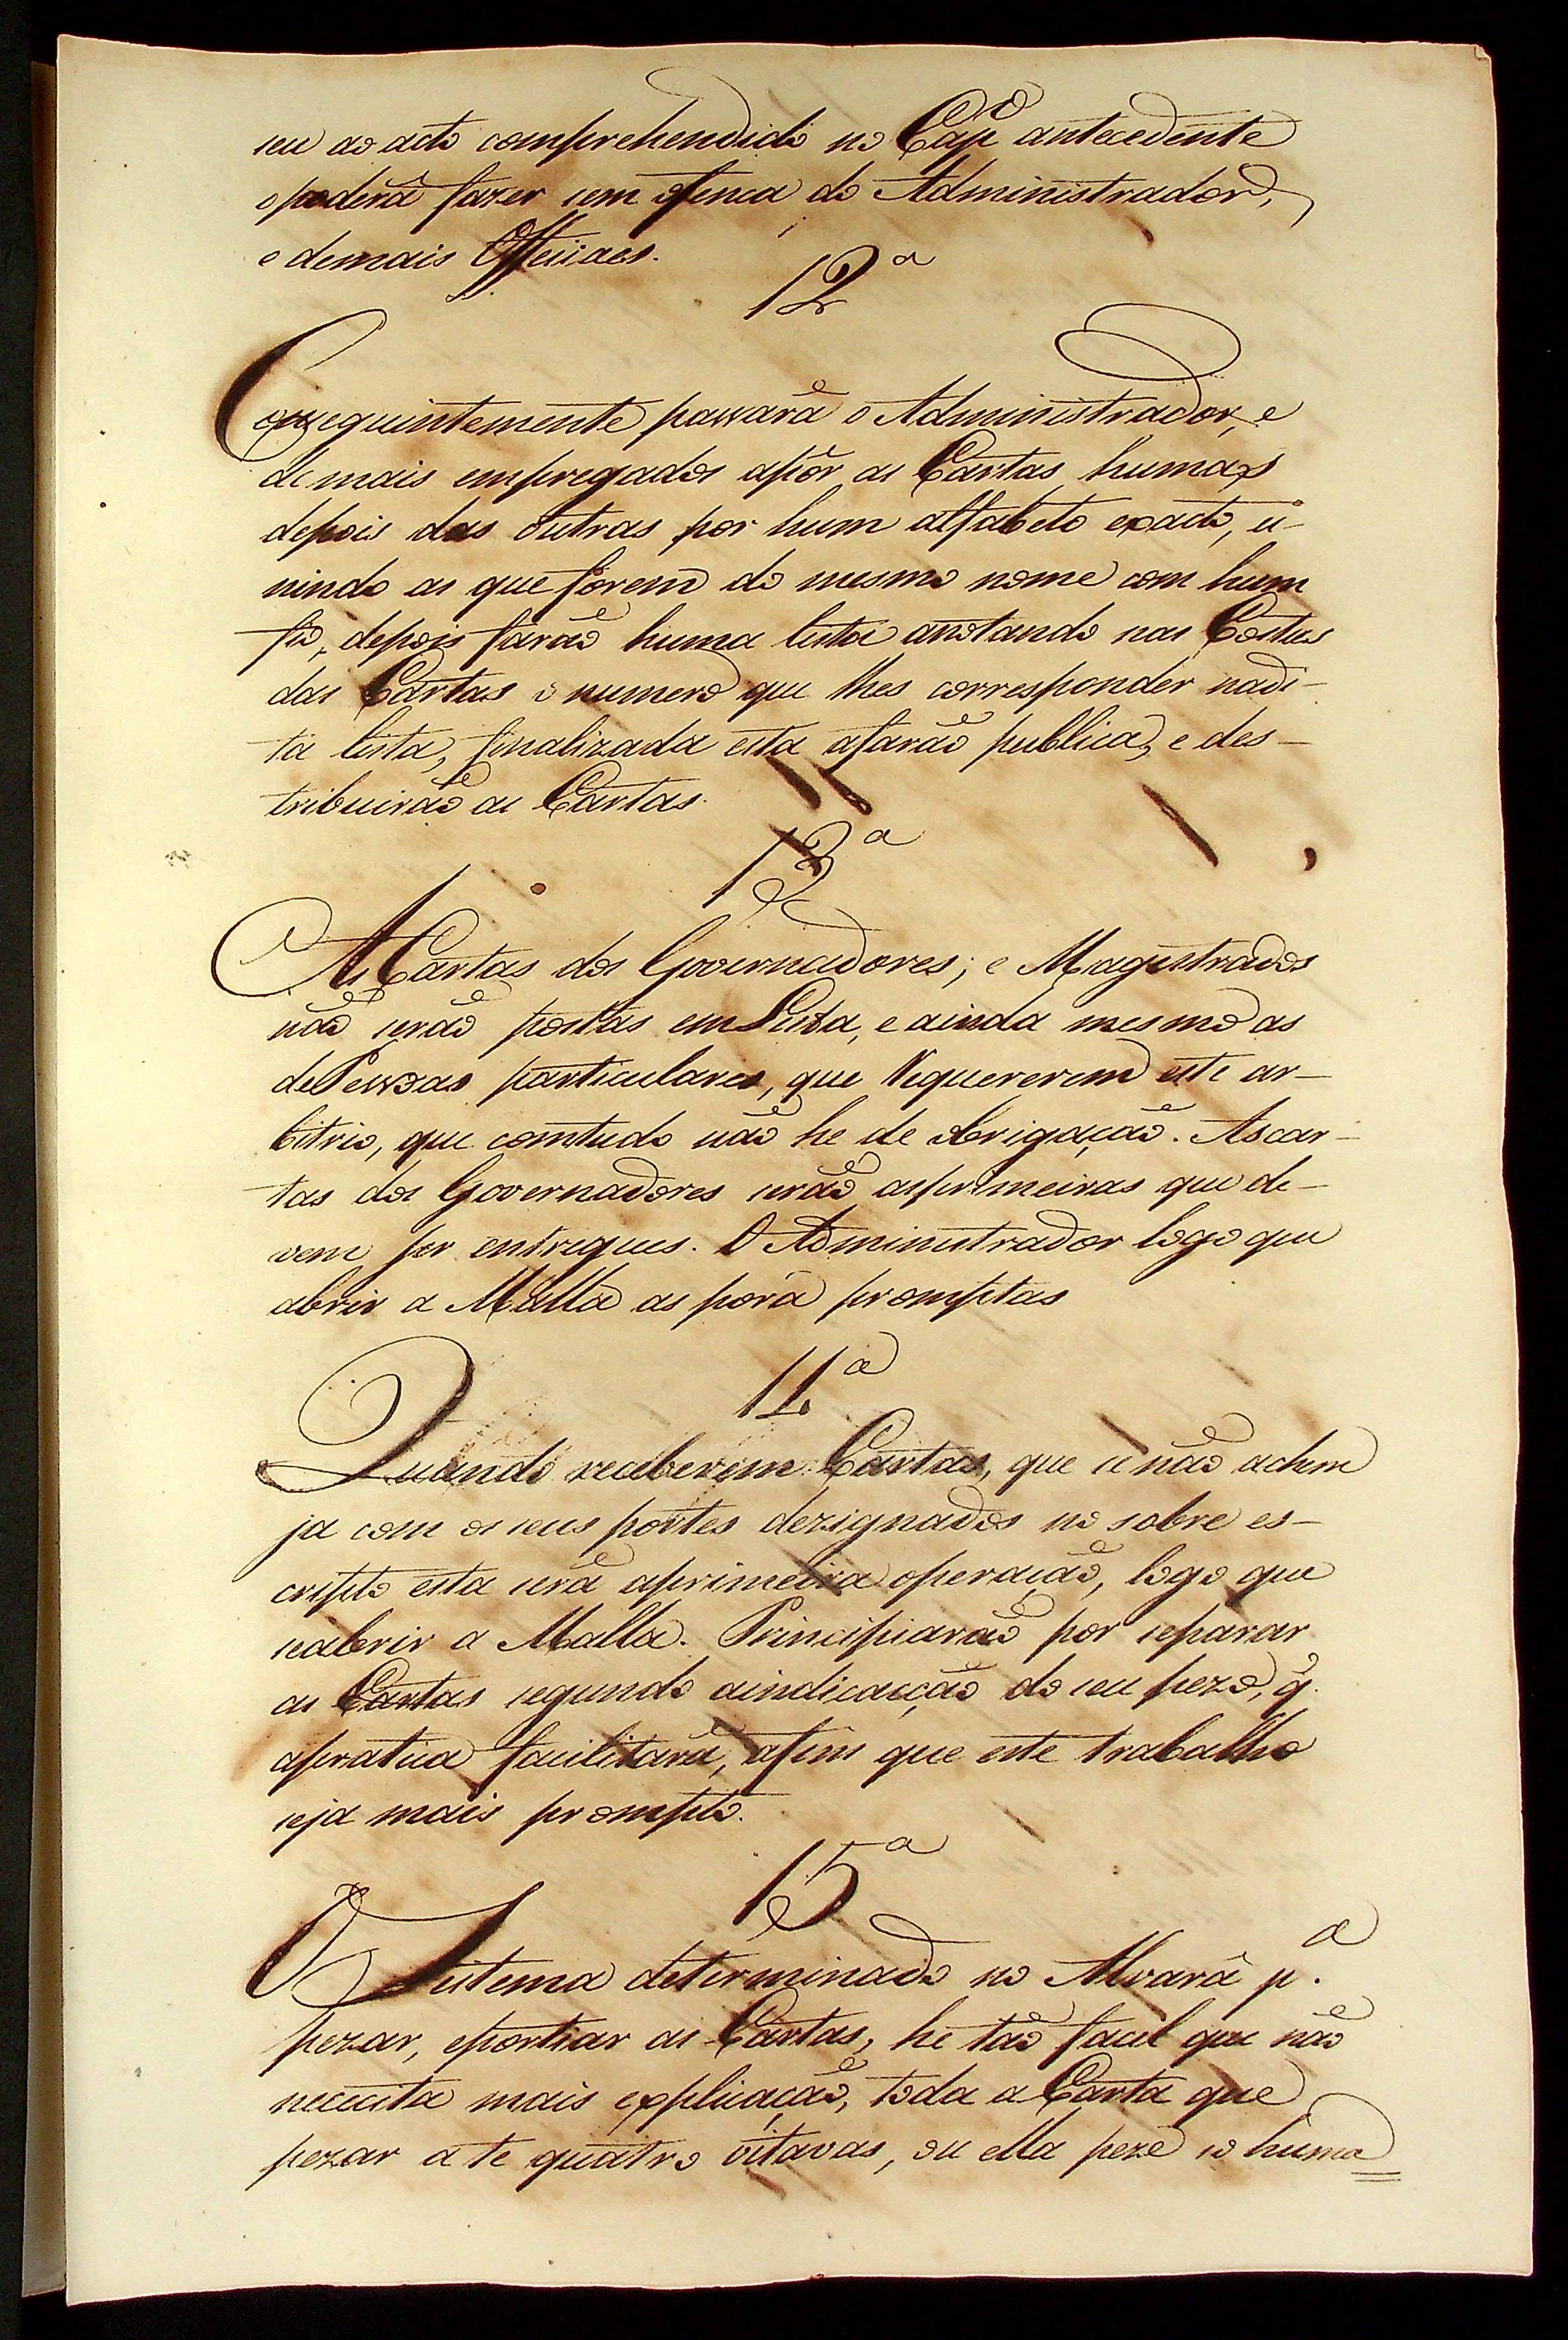 seu ao acto comprehendido no Cap.º antecedente
o poderá fazer sem ofenca do Administrador,
e demais Officiaes.
12ª
Conseguintemente passará o Administrador, e
de mais empregados apôr as Cartas humas
depois das outras por hum alfabeto exacto, u-
nindo as que forem do mesmo nome com hum
fio, depois farão huma lista anotando nas Costas
das Cartas o numero que lhes corresponder nadi-
ta lista, finalizada esta afarão publica, e des-
tribuirão as Cartas.
13ª
As Cartas dos Governadores; e Magistrados
não serão postas em Lista, e ainda mesmo as
de Pessoas particulares, que Requererem este ar-
bitrio, que comtudo não he de obrigação. As car-
tas dos Governadores serão asprimeiras que de-
vem ser entregues. O Administrador logo que
abrir a Malla as porá promptas
14ª
Quando receberem Cartas, que se não achem
ja com os seus portes dezignados no sobre es-
cripto esta será aprimeira operação, logo que
seabrir a Malla. Principiarão por separar
as Cartas segundo aindicacção do seu pezo, q̃
apratica facilitará, afim que este trabalho
seja mais prompto.
15ª
O Sistema determinado no Alvará p.ª
pezar, eportiar as Cartas, he tão facil que não
nececita mais explicação, toda a Carta que
pezar a te quatro oitavas, ou ella peze so huma